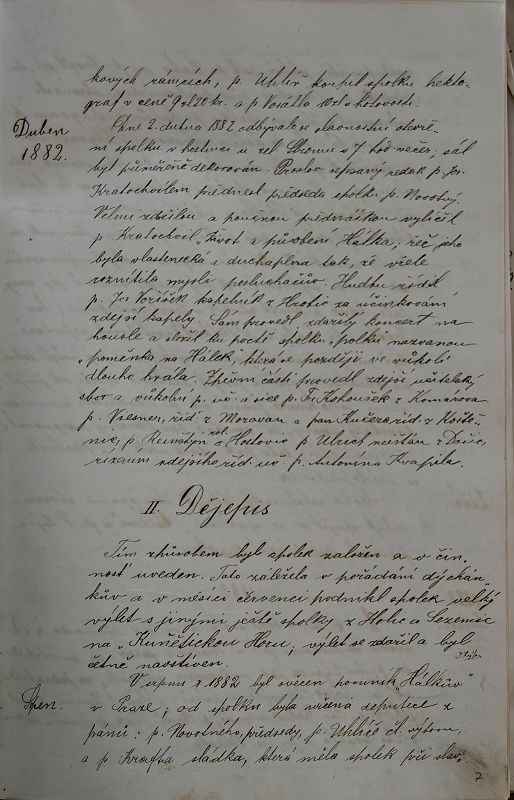 kových rámcích, p. Uhlíř koupil spolku hekto-
graf v ceně 9 zl 20 kr. a p Vosáhlo 10 zl v hotovosti.
Duben
1882.
Dne 2. dubna 1882 odbývalo se slavnostní otevře-
ní spolku v hostinci u zel. Stromu v 7 hod večer, sál
byl přiměřeně dekorován. Proslov sepsaný redak p. Jos.
Kratochvílem přednesl předseda spolku p. Novotný.
Velmi zdařilou a poučnou přednáškou vylíčil
p Kratochvíl „Život a působení Hálka; řeč jeho
byla vlastenecká a duchaplna tak, že vřele
roznítila mysli posluchačův. Hudbu řídil
p. Jos Voříšek kapelník z Hrobic za účinkování
zdejší kapely. Sám provedl zdařilý koncert na
housle a složil ku poctě spolku „polku nazvanou
„poměnka na Hálek, která se později ve vůkolí
dlouho hrála. Zpěvní části provedl zdejší učitelský
sbor a vůkolní p. uč. a sice p. Fr. Kohoušek z Komárova
p. Viesner, říd. z Moravan a pan Kučera říd. z Koště-
nic, p. z p. Ulrich z
řízením zdejšího říd. uč. p. Antonína Kvapila.
II. Dějepis
Tím způsobem byl spolek založen a v čin-
nosť uveden. Tato záležela v pořádání dýchán-
kův a v měsíci červenci podnikl spolek velký
výlet s jinými ještě spolky z Holic a Sezemic
na „Kunětickou Horu, výlet se zdařil a byl
četně navštíven.
V srpnu r 1882 byl svěcen pomník „Hálkův"
Srpen.
v Praze; od spolku byla vyslána deputace z
pánů: p. Novotného, předsedy, p. Uhlíře čl. výboru,
a p Krafta sládka, která měla spolek při slav-
2